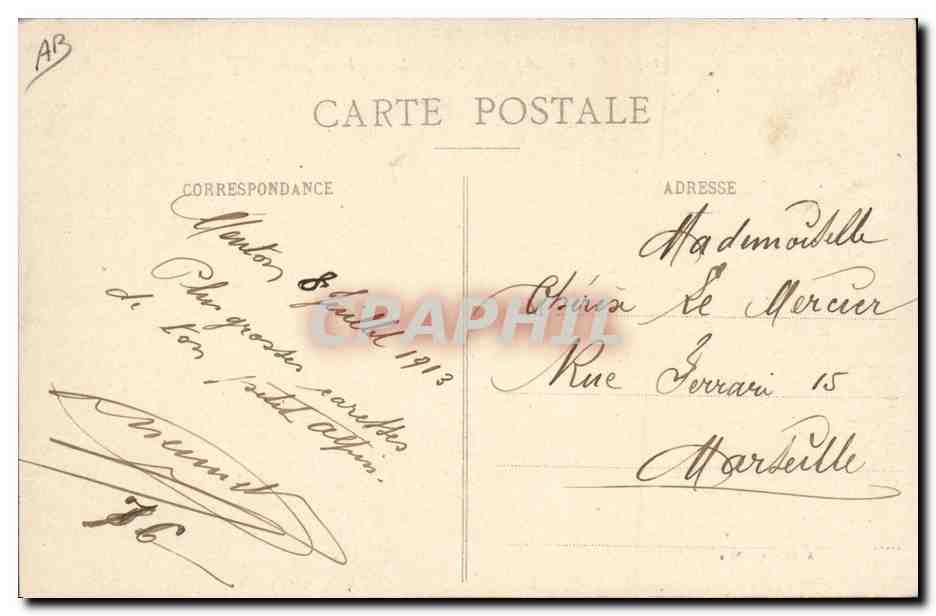 AB
CARTE POSTALE
CORRESPONDANCE
Menton 8 Juillet 1913
Plus grosses caresses
de ton petit Alpin.
76
ADRESSE
Mademoiselle
Le Mercier
Rue Ferrari 15
Marseille
CRAPHIL